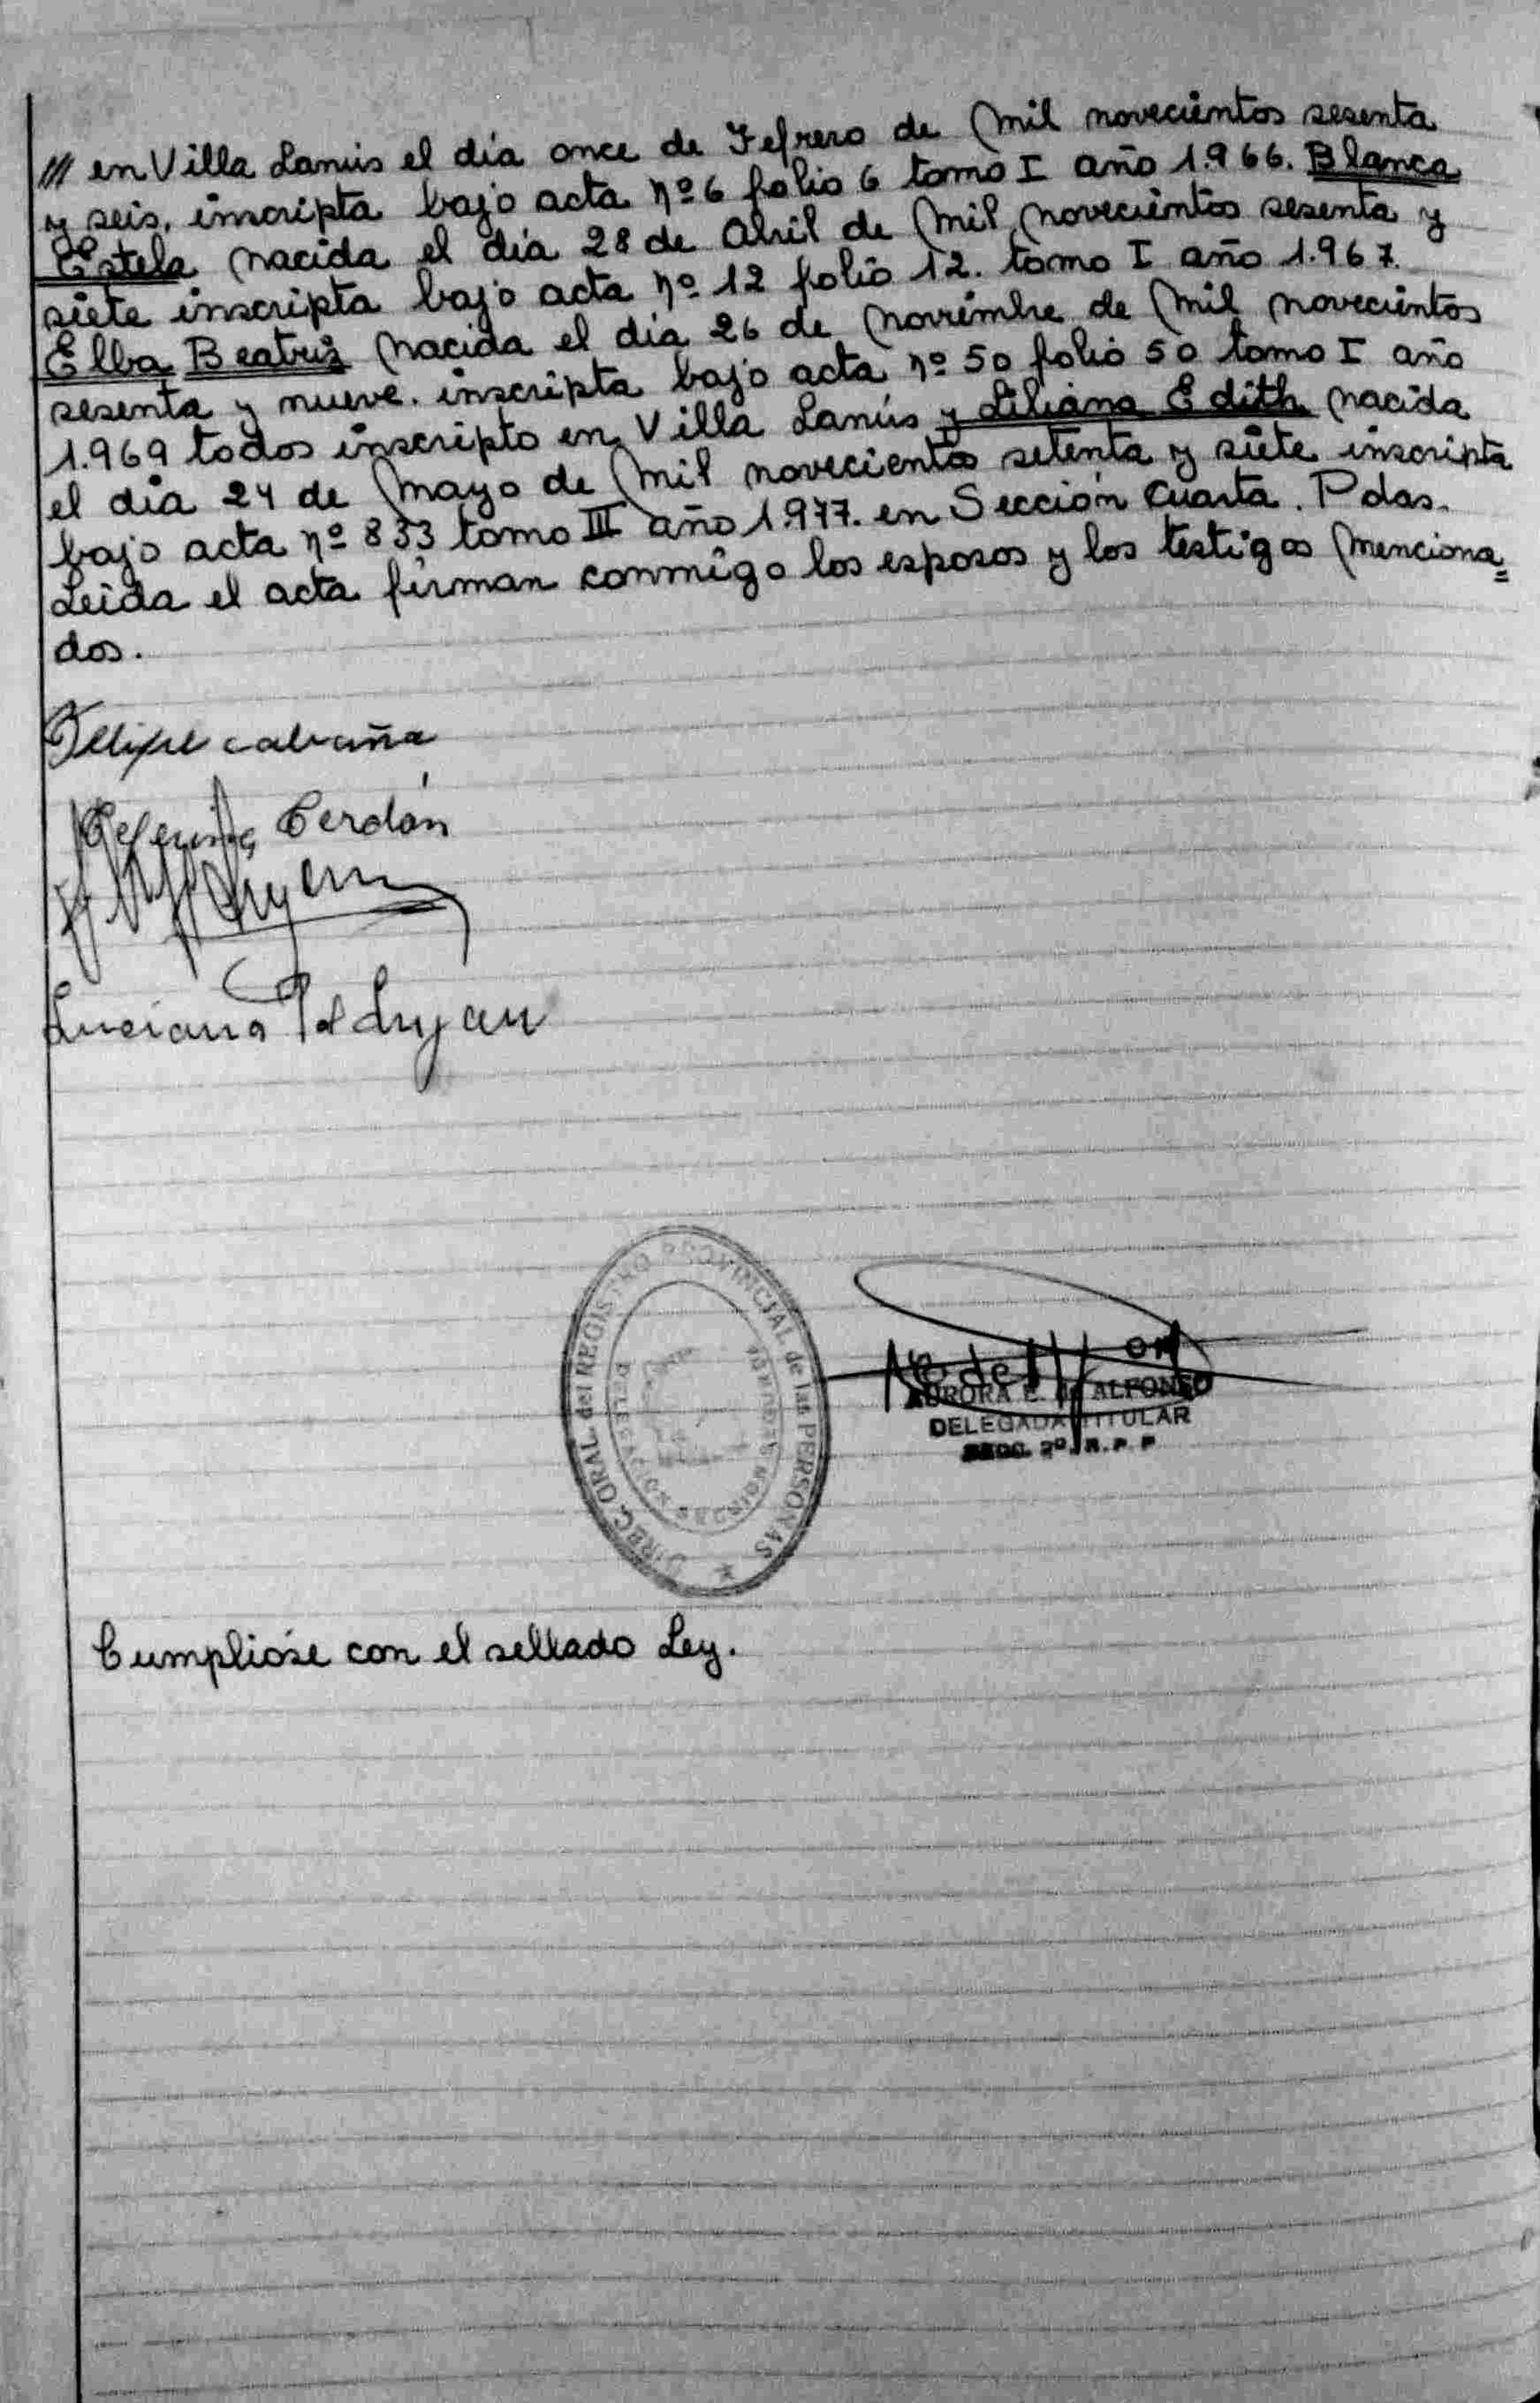 /// en Villa Lanús el día once de Febrero de mil novecientos sesenta
y seis, inscripta bajo acta nº 6 folio 6 tomo I año 1.966. Blanca
Estela nacida el día 28 de Abril de mil novecientos sesenta y
siete inscripta bajo acta nº 12 folio 12. tomo I año 1.967.
Elba Beatriz nacida el día 26 de noviembre de mil novecientos
sesenta y nueve. inscripta bajo acta nº 50 folio 50 tomo I año
1.969 todos inscripto en Villa Lanús y Liliana Edith nacida
el día 24 de mayo de mil novecientos setenta y siete inscripta
bajo acta nº 833 tomo III año 1.977. en Sección Cuarta. Pdas.
Leida el acta firman conmigo los esposos y los testigos menciona=
dos.
Felipe cabaña
Cerdán
Luciana de Lujan
DIREC. GRAL. del REGISTRO PROVINCIAL de las PERSONAS
DELEGACION SECCION
AURORA E. de ALFONSO
DELEGADA TITULAR
SECC. 2º. R. P. P.
Cumplióse con el sellado Ley.